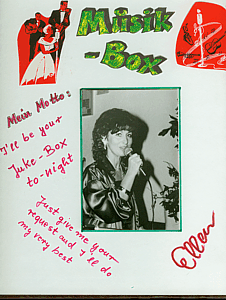 Musik
-Box
Mein Motto:
I'll be your
Juke-Box
to-night
Just give me your
request and I'll do
my very best
Ellen